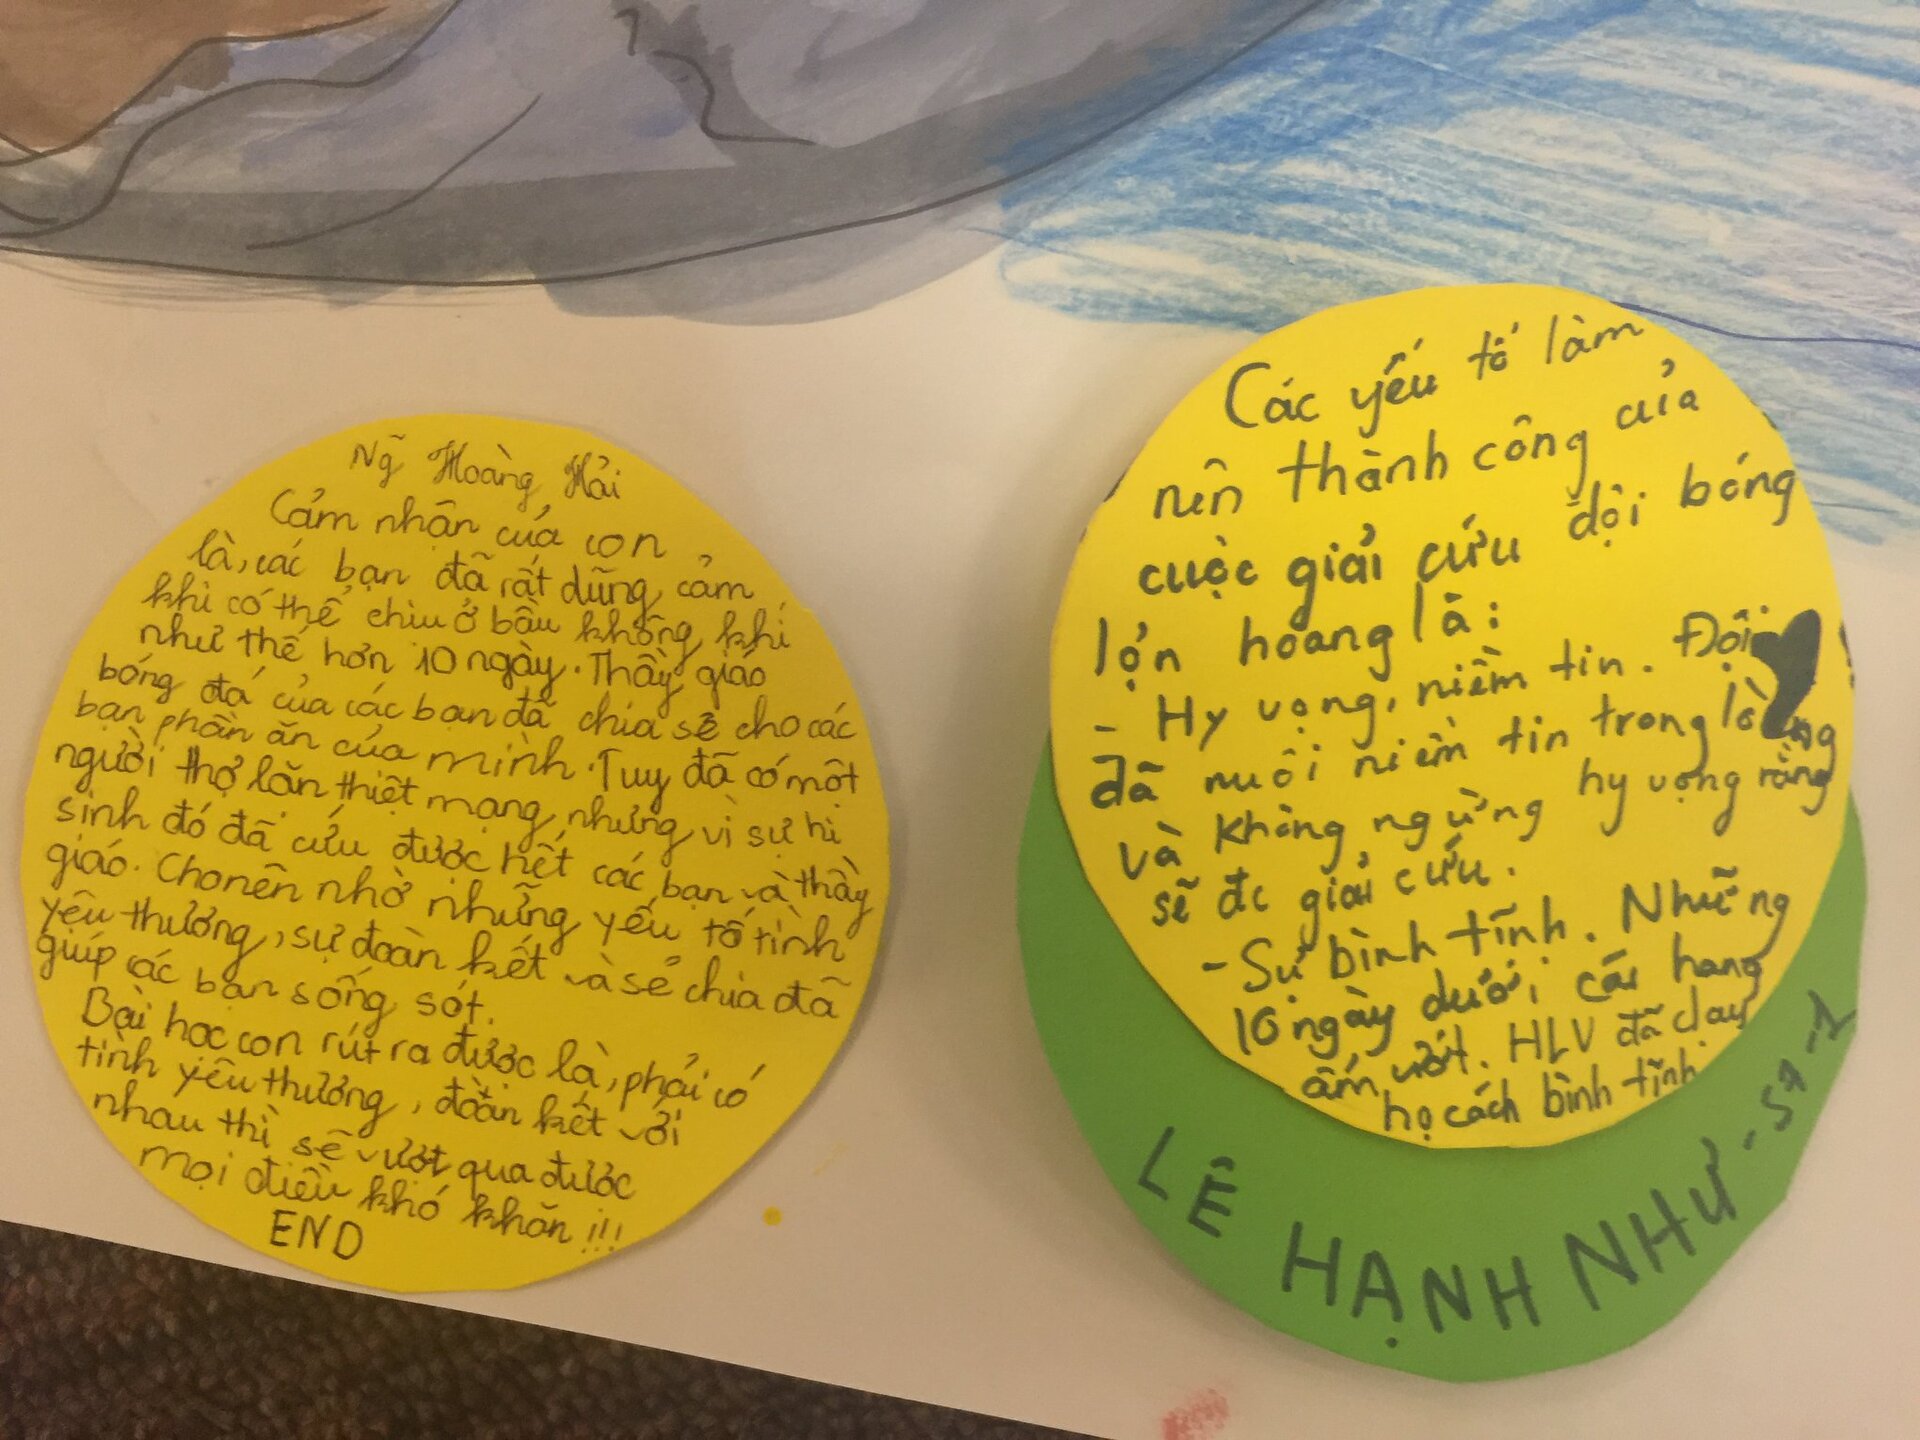 Ng̃ Hoàng Hải
Cảm nhận của con
là, các bạn đã rất dũng cảm
khi có thể chịu ở bầu không khí
như thế hơn 10 ngày. Thầy giáo
bóng đá của các bạn đã chia sẽ cho các
bạn phần ăn của mình. Tuy đã có một
người thợ lặn thiệt mạng, nhưng vì sự hi
sinh đó đã cứu được hết các bạn và thầy
giáo. Cho nên nhờ những yếu tố tình
yêu thương, sự đoàn kết và sẻ chia đã
giúp các bạn sống sót.
Bài học con rút ra được là, phải có
tình yêu thương, đoàn kết với
nhau thì sẽ vượt qua được
mọi điều khó khăn !!!
END
Các yếu tố làm
nên thành công của
cuộc giải cứu đội bóng
lợn hoang là:
- Hy vọng, niềm tin. Đội
đã nuôi niềm tin trong lòng
và không ngừng hy vọng rằng
sẽ đc giải cứu.
- Sự bình tĩnh. Những
10 ngày dưới cái hang
ẩm ướt. HLV đã dạy
họ cách bình tĩnh.
LÊ HẠNH NHƯ - S7 - 1